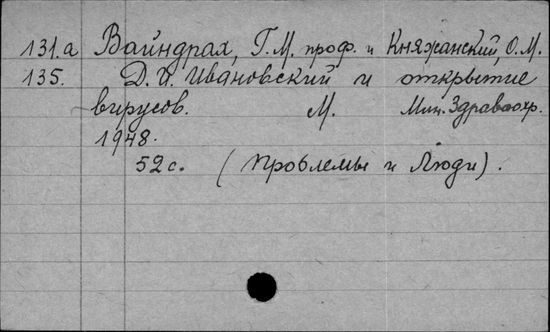 131.а Вайндрах, Г.М. проф. и Княжанский, О.М.
135. Д.И. Ивановский и открытие
вирусов. М. Мин. Здравоохр.
1948.
52 с. (Проблемы и Люди).